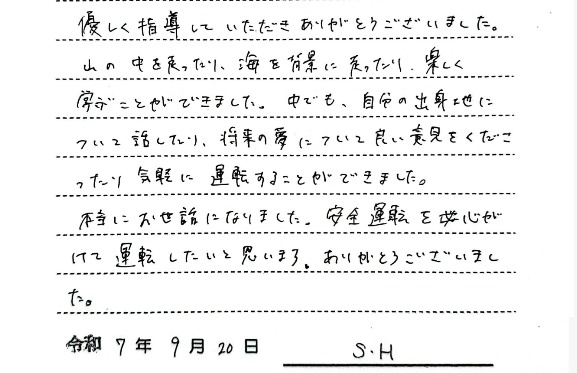 優しく指導していただきありがとうございました。
山の中を走ったり、海を背景に走ったり、楽しく
学ぶことができました。中でも、自分の出身地に
ついて話したり、将来の夢について良い意見をくださ
ったり気軽に運転することができました。
本当にお世話になりました。安全運転を心が
けて運転したいと思います。ありがとうございまし
た。
令和7年9月20日 S.H